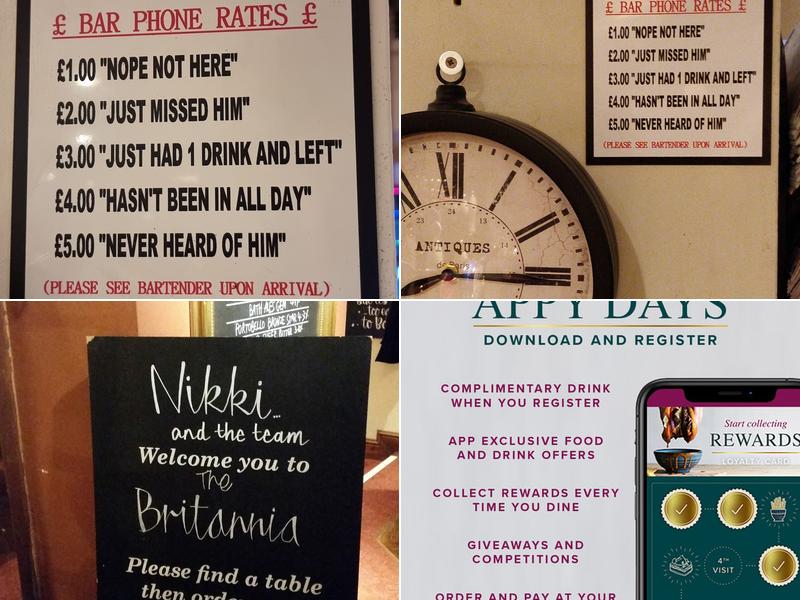 £ BAR PHONE RATES £
£1.00 "NOPE NOT HERE"
£2.00 "JUST MISSED HIM"
£3.00 "JUST HAD 1 DRINK AND LEFT"
£4.00 "HASN'T BEEN IN ALL DAY"
£5.00 "NEVER HEARD OF HIM"
(PLEASE SEE BARTENDER UPON ARRIVAL)
£ BAR PHONE RATES £
£1.00 "NOPE NOT HERE"
£2.00 "JUST MISSED HIM"
£3.00 "JUST HAD 1 DRINK AND LEFT"
£4.00 "HASN'T BEEN IN ALL DAY"
£5.00 "NEVER HEARD OF HIM"
(PLEASE SEE BARTENDER UPON ARRIVAL)
XII
I
II
III
23
24
13
14
ANTIQUES
de Paris
PORTOBELLO BLONDE
Nikki...
and the team
Welcome you to
The
Britannia
Please find a table
then
APPY DAYS
DOWNLOAD AND REGISTER
COMPLIMENTARY DRINK
WHEN YOU REGISTER
APP EXCLUSIVE FOOD
AND DRINK OFFERS
COLLECT REWARDS EVERY
TIME YOU DINE
GIVEAWAYS AND
COMPETITIONS
ORDER AND PAY AT YOUR
Start collecting
REWARDS
LOYALTY CARD
4TH
VISIT